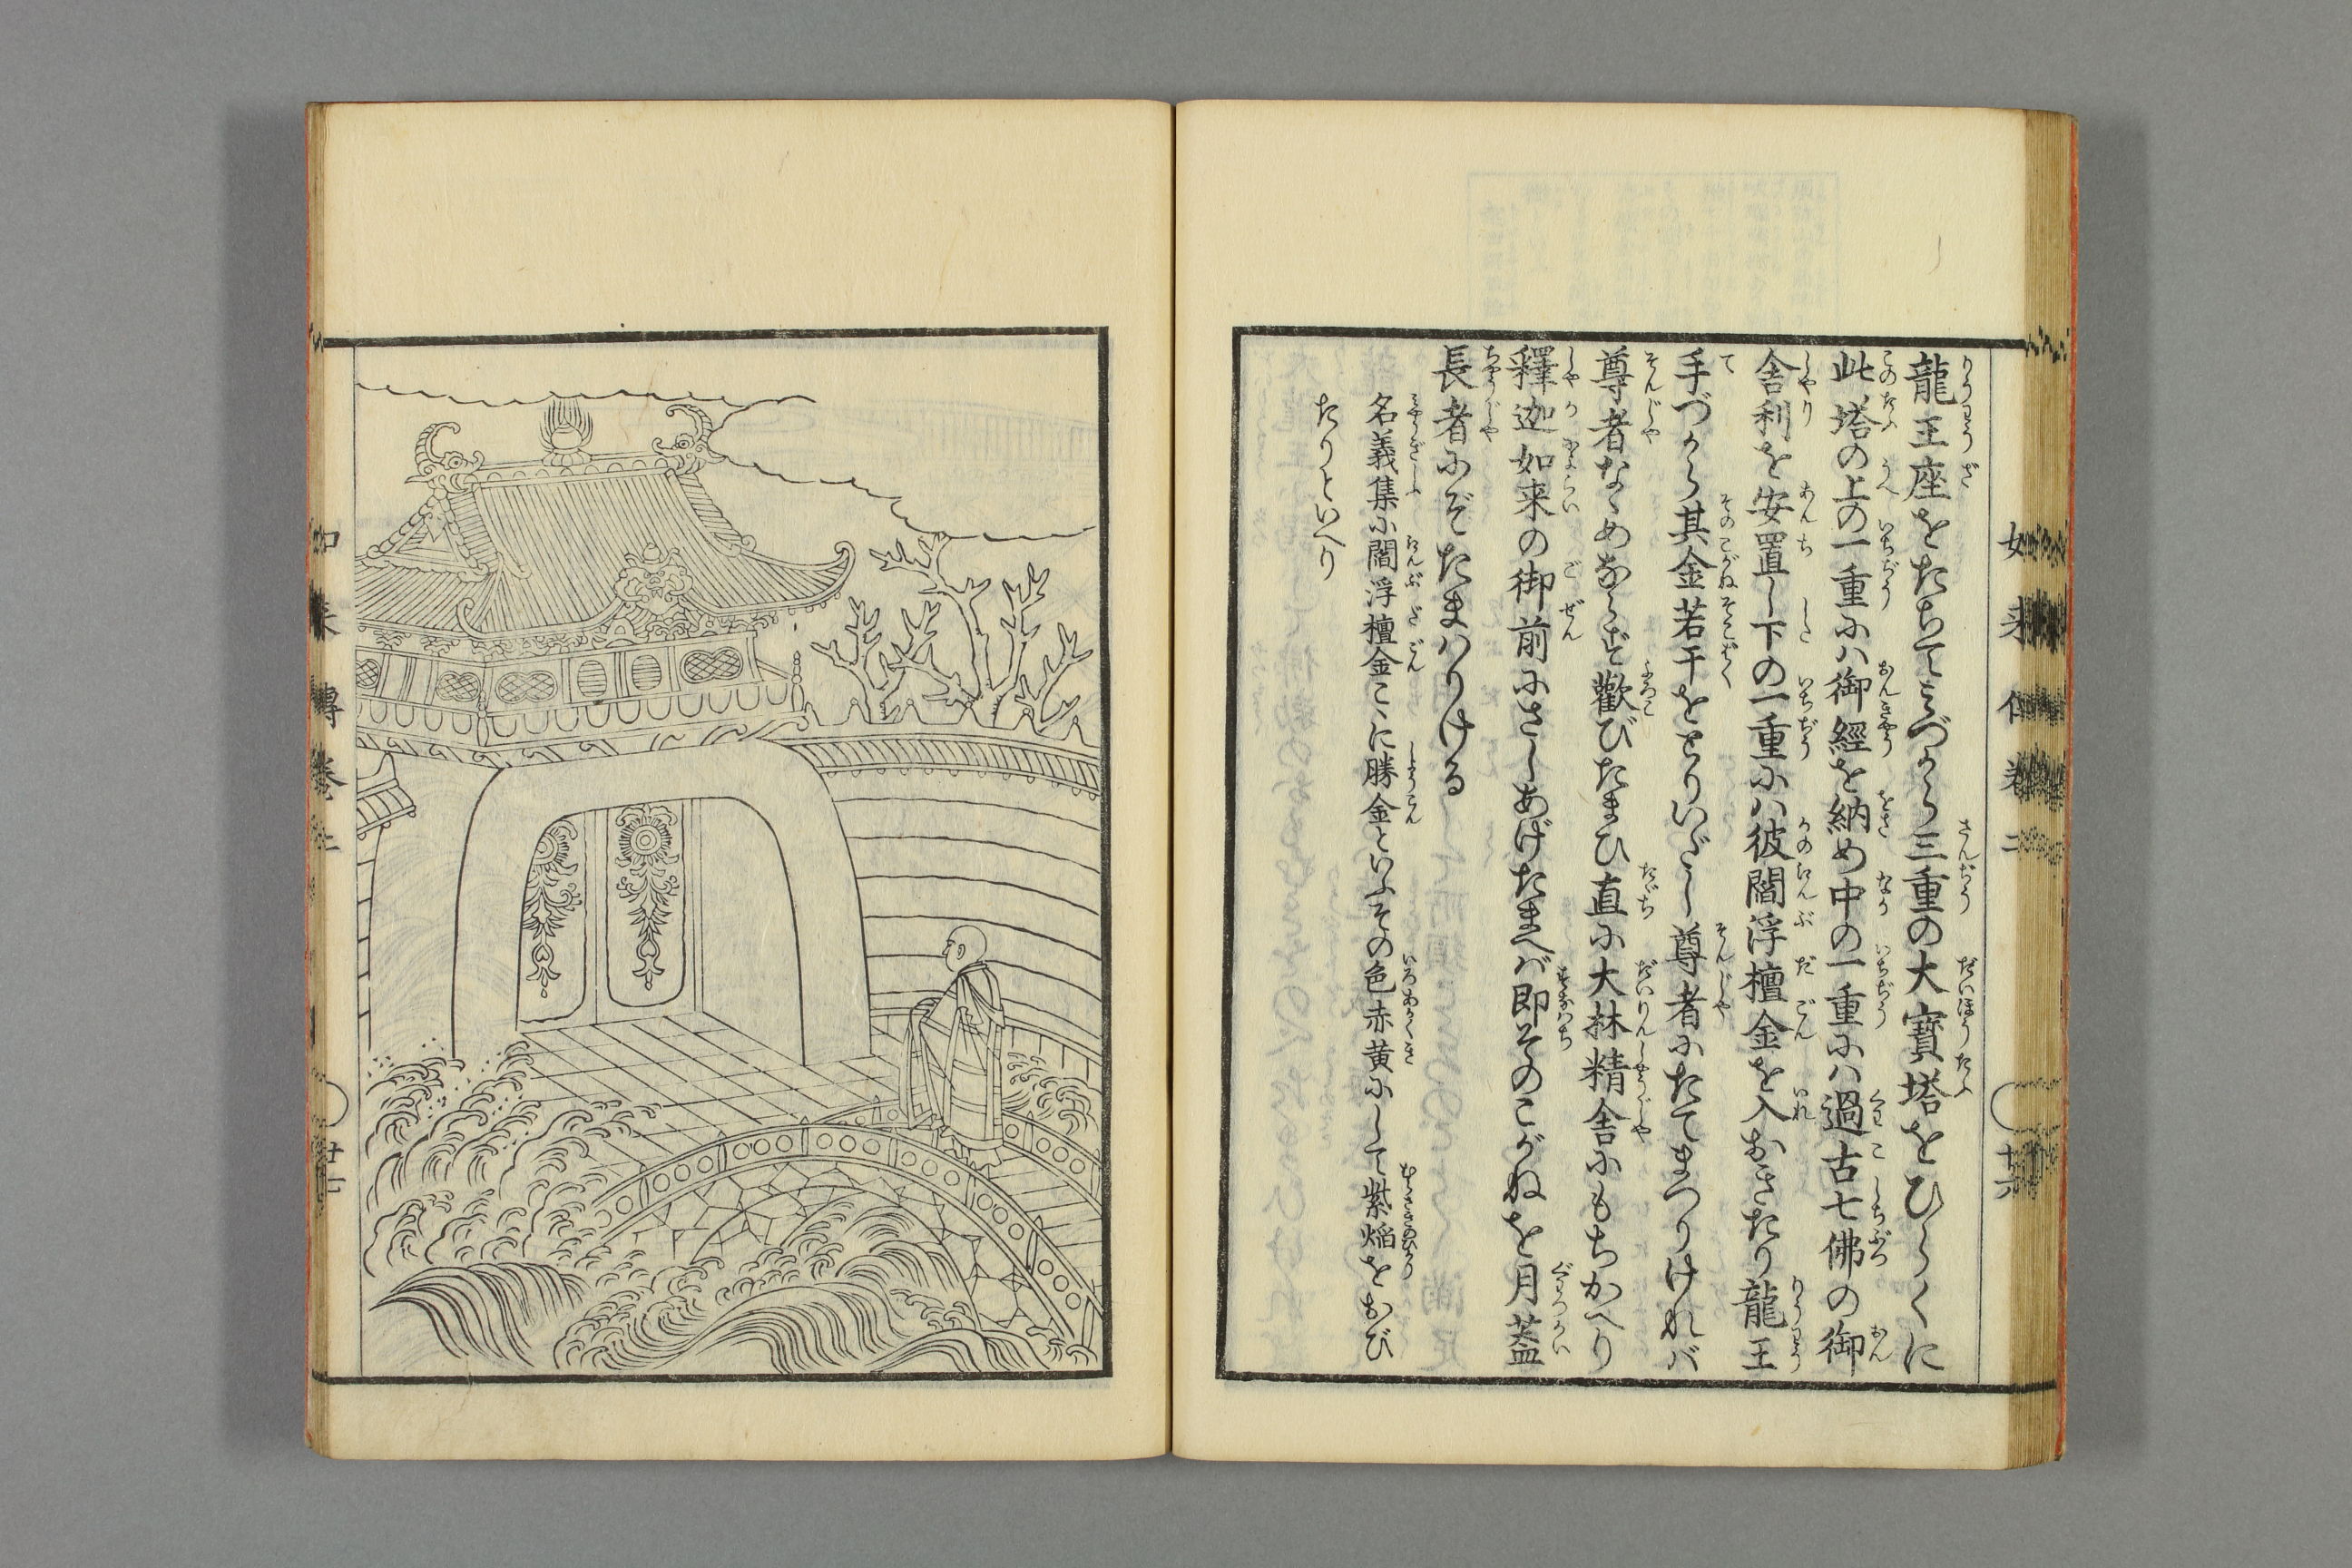 龍王座をたちてみづから三重の大寳塔をひらくに
此塔の上の一重にハ御經を納め中の一重にハ過古七佛の御
舎利を安置し下の一重にハ彼閻浮檀金を入おきたり龍王
手づから其金若干をとりいだし尊者にたてまつりけれバ
尊者なゝめならず歡びたまひ直に大林精舎にもちかへり
釋迦如来の御前にさしあげたまへバ即そのこがねを月蓋
長者にぞたまハりける
名義集に閻浮檀金こゝに勝金といふその色赤黄にして紫焔をおび
たりといへり
如来傳巻二